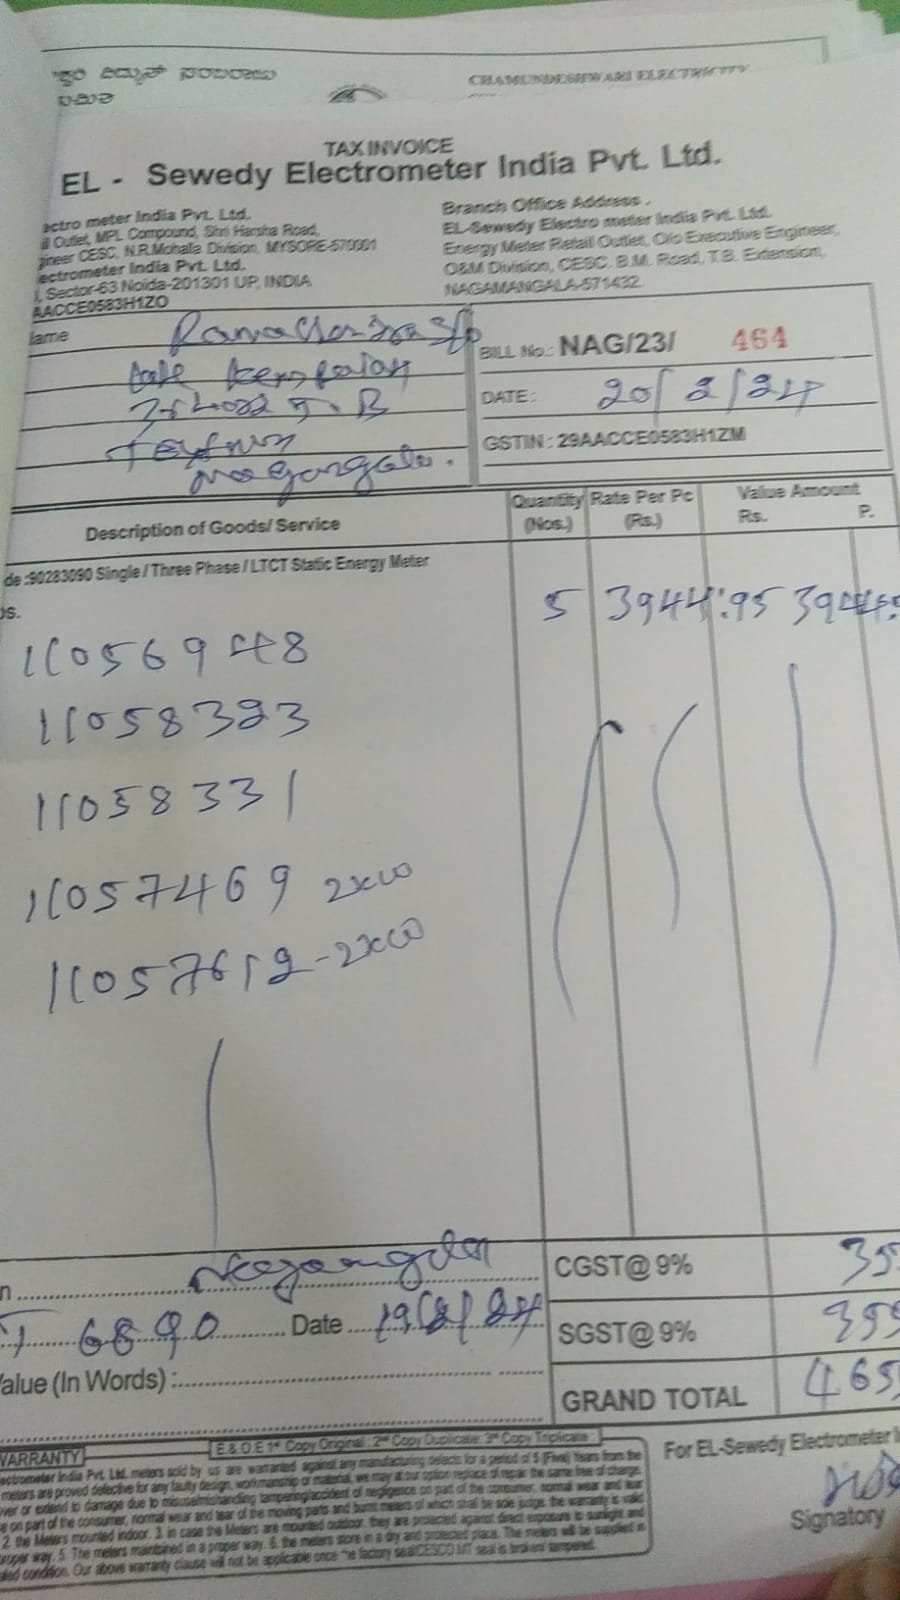 CHAMUNDESHWARI ELECTRICITY
TAX INVOICE
EL - Sewedy Electrometer India Pvt. Ltd.
ectro meter India Pvt. Ltd.
ll Outlet, MPL Compound, Shri Harsha Road,
gineer CESC, N.R.Mohalla Division, MYSORE-570001
ectrometer India Pvt. Ltd.
, Sector-63 Noida-201301 UP, INDIA
AACCE0583H1ZO
Branch Office Address .
EL-Sewedy Electro meter India Pvt. Ltd.
Energy Meter Retail Outlet, O/o Executive Engineer,
O&M Division, CESC. B.M. Road, T.B. Extension,
NAGAMANGALA-571432.
lame
late
BILL No.: NAG/23/ 464
DATE: 20/2/24
GSTIN : 29AACCE0583H1ZM
Description of Goods/ Service
Quantity (Nos.)
Rate Per Pc (Rs.)
Value Amount
Rs. P.
de :90283090 Single / Three Phase / LTCT Static Energy Meter
os.
5 3944:95 3944
11056948
11058323
11058331
11057469 2xw
11057612-2xw
n
CGST@ 9% 355
6890 Date 19/2/24
SGST@ 9% 355
alue (In Words) :
GRAND TOTAL 465
E & O.E 1st Copy Original : 2nd Copy Duplicate: 3rd Copy Triplicate :
WARRANTY
ectrometer India Pvt. Ltd. meters sold by us are warranted against any manufacturing defects for a period of 5 (Five) Years from the
meters are proved defective for any faulty design, workmanship or material, we may at our option replace or repair the same free of charge.
ver or extend to damage due to misuse/mishandling tampering/accident of negligence on part of the consumer, normal wear and tear
e on part of the consumer, normal wear and tear of the moving parts and burnt meters of which shall be sole judge, the warranty is valid
2. the Meters mounted indoor. 3. in case the Meters are mounted outdoor, they are protected against direct exposure to sunlight and
proper way. 5. The meters maintained in a proper way. 6. the meters store in a dry and protected place. The meters will be supplied in
aled condition. Our above warranty clause will not be applicable once the factory seal/CESCO MT seal is broken/ tampered.
For EL-Sewedy Electrometer I
Signatory